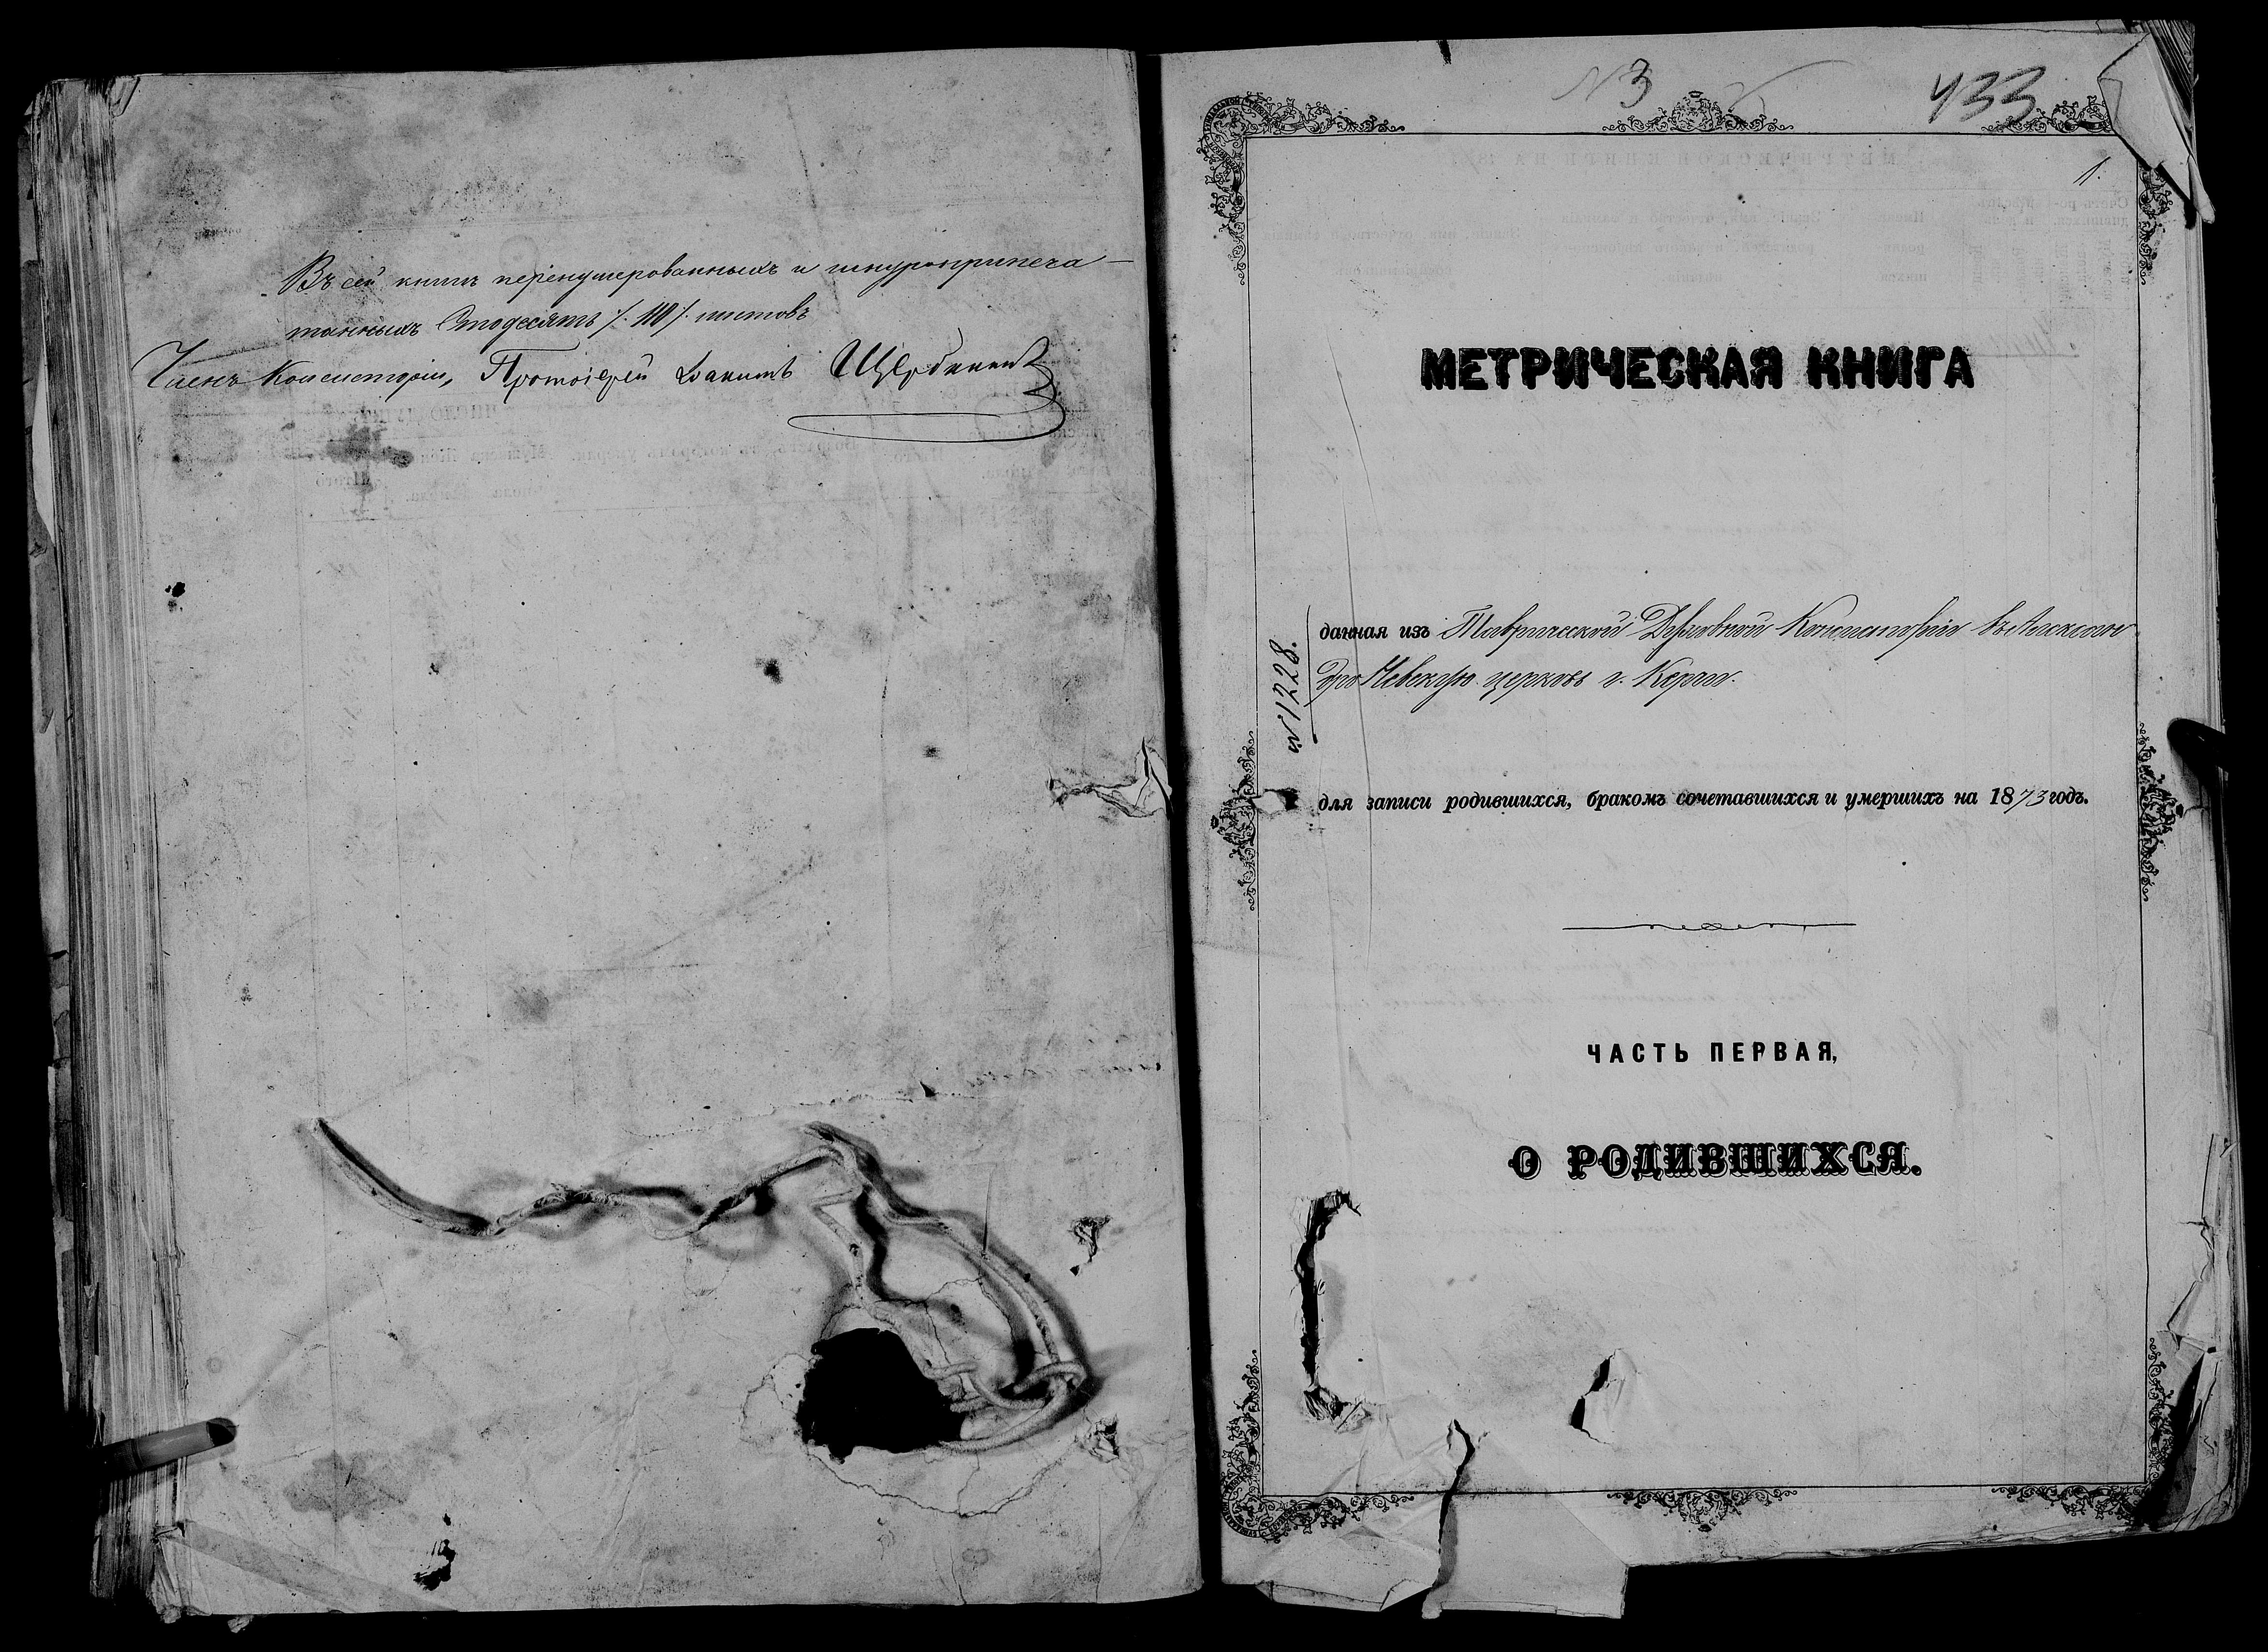 Въ сей книгѣ перенумерованныхъ и шнуроприпеча-
танныхъ Стодесять /:110/: листовъ
Членъ Консисторіи, Протоіерей
№ 3
433
1.
МЕТРИЧЕСКАЯ КНИГА
№ 11228.
данная изъ Таврической Духовной Консисторіи въ Александ
ро Невскую церковь г. Керчи.
для записи родившихся, бракомъ сочетавшихся и умершихъ на 1873 годъ.
ЧАСТЬ ПЕРВАЯ,
О РОДИВШИХСЯ.